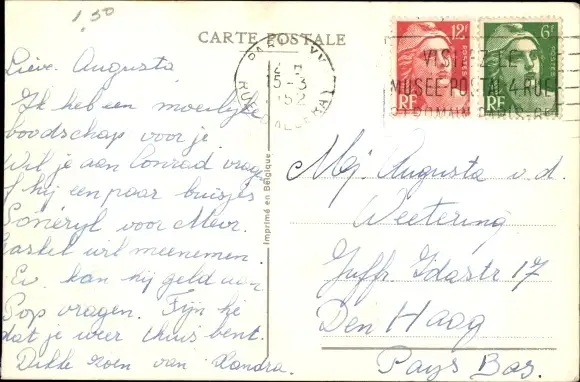 1,50
CARTE POSTALE
Lieve Augusta
Ik heb een moeilijke
boodschap voor je
Wil je aan Conrad vragen
of hij een paar buisjes
Sonéryl voor Mevr.
wil meenemen.
Ev. kan hij geld aan
Pop vragen. Fijn hè
dat je weer thuis bent.
Dikke zoen van Xandra.
Imprimé en Belgique
PARIS XV
5-3
52
RUE D'ALLERAY
12F
POSTES
RF
6F
POSTES
RF
VISITEZ LE
MUSEE POSTAL 4 RUE
ST ROMAIN PARIS
Mej. Augusta v.d.
Weetering
Juffr. Idastr 17
Den Haag
Pays Bas.